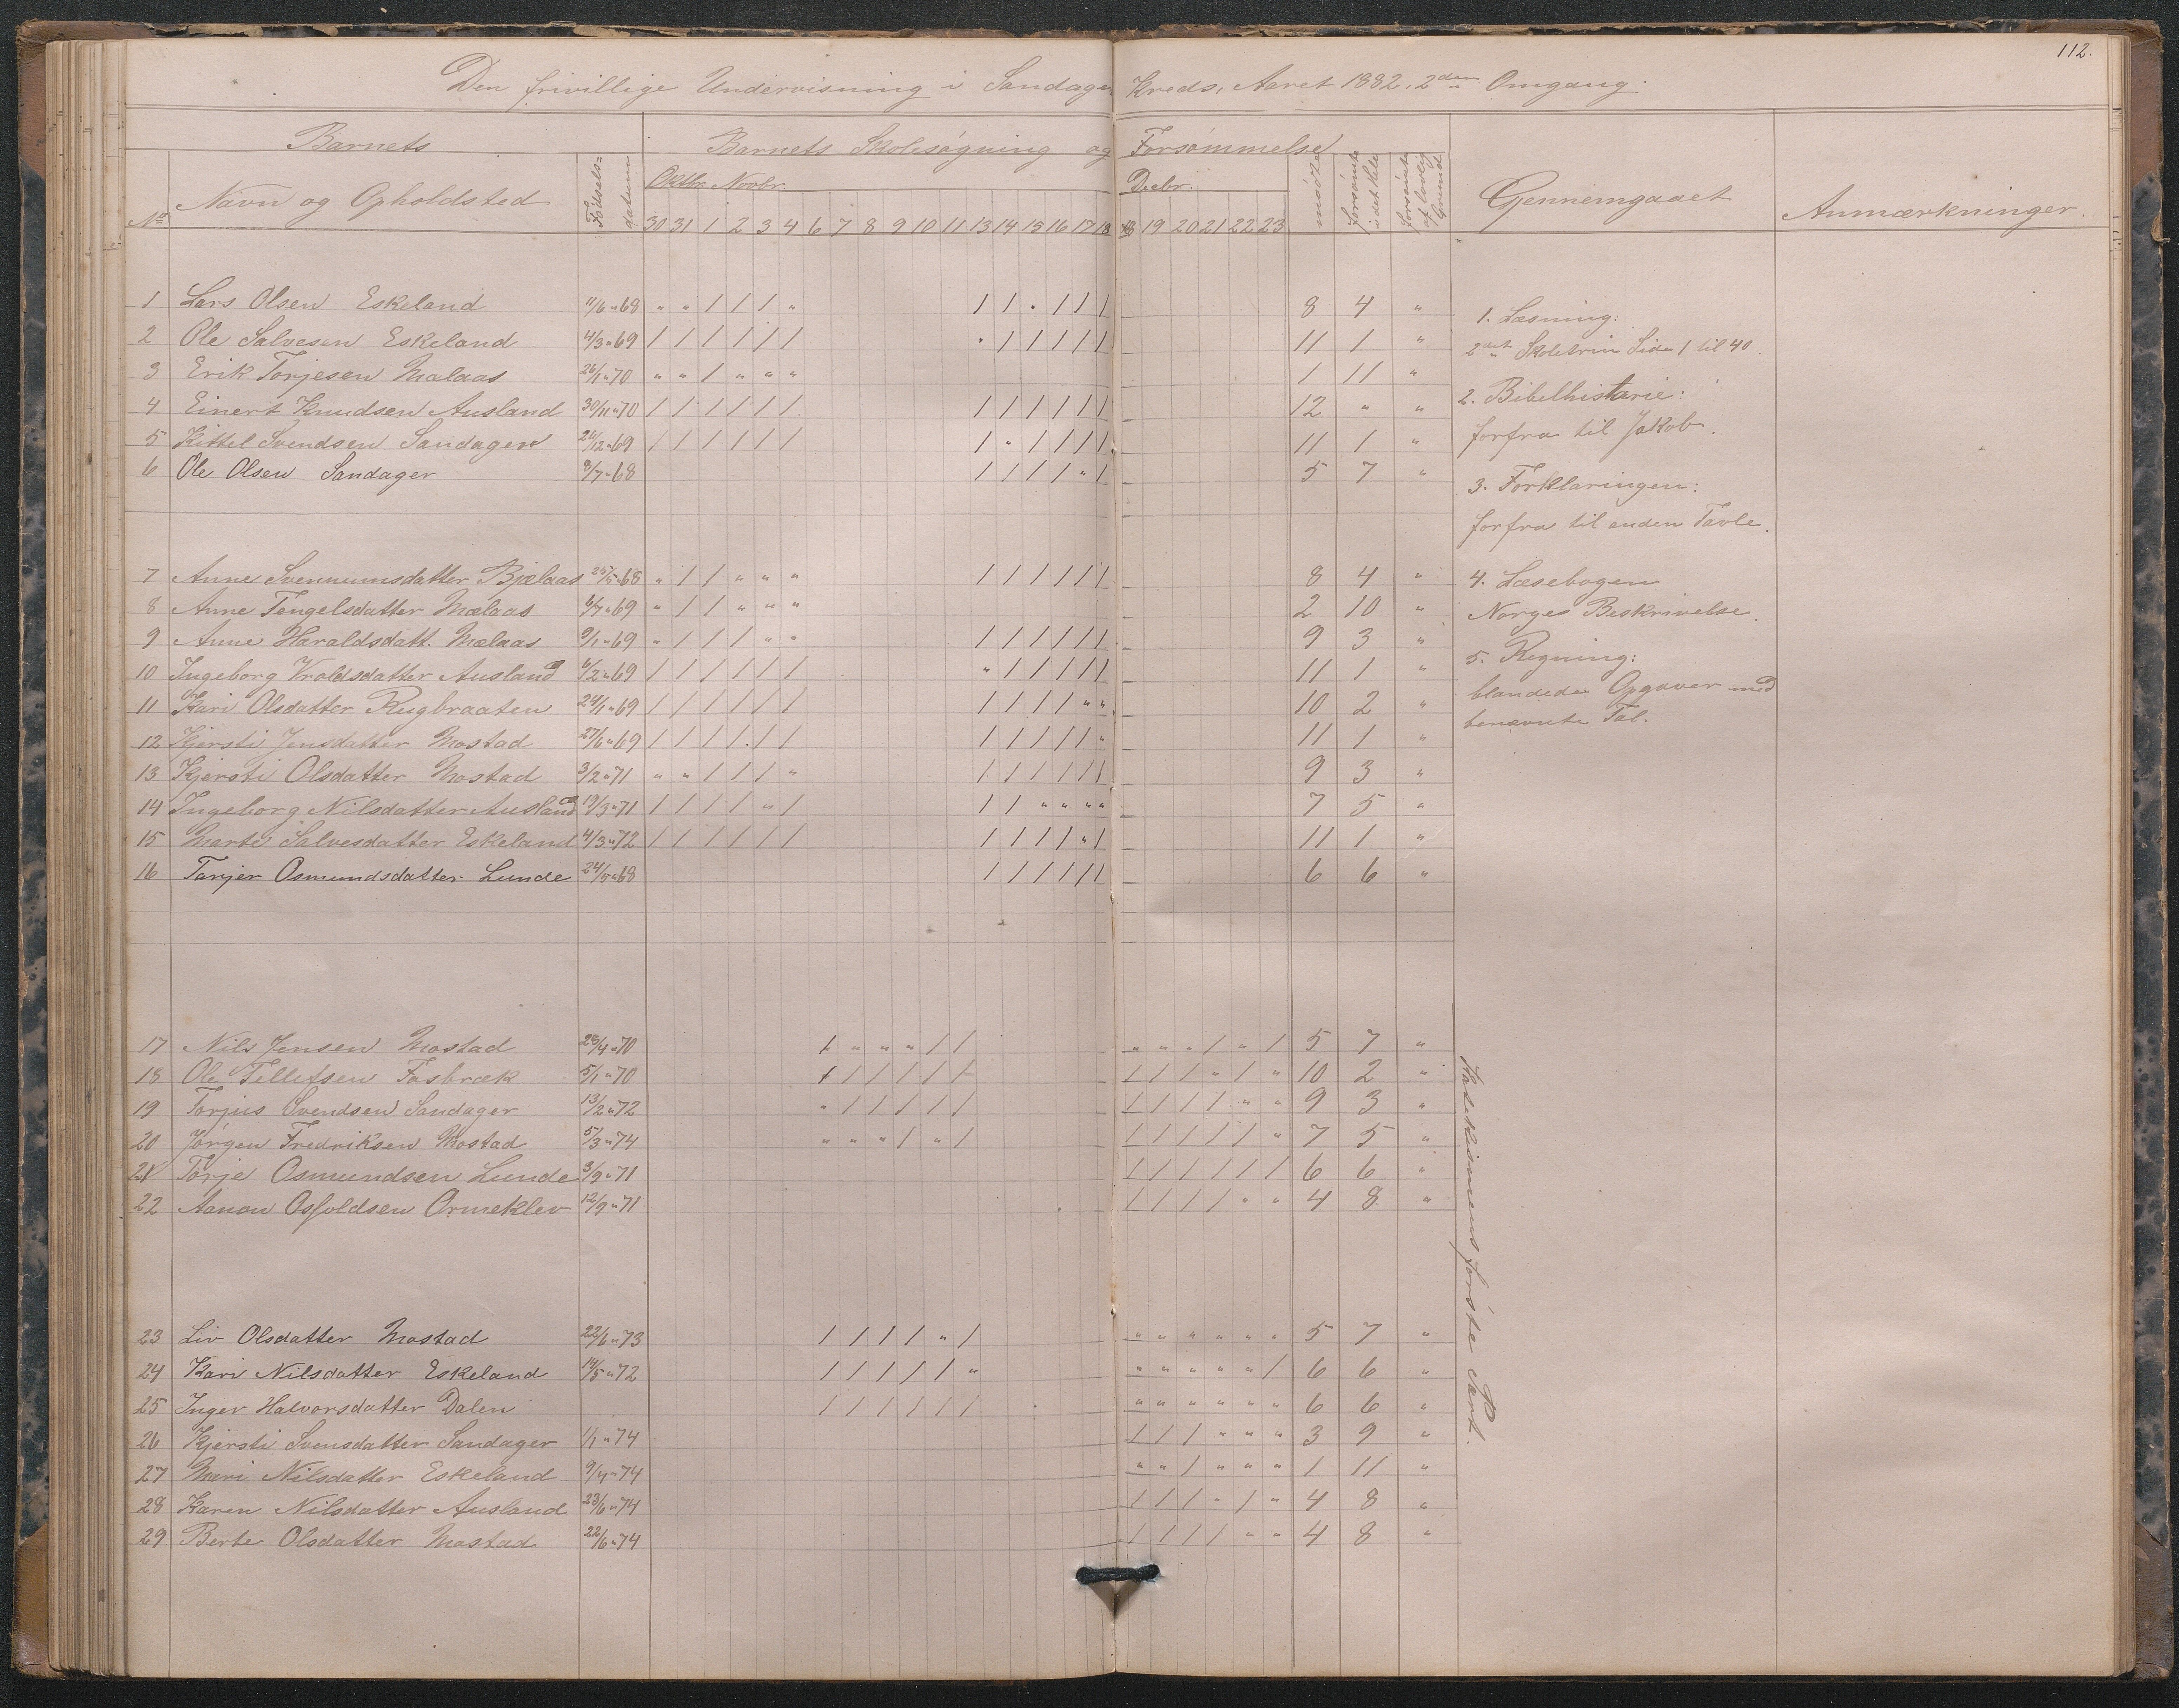 112.
Den frivillige Undervisning i Sandager Kreds, Aaret 1882, 2den Omgang.
Barnets
Barnets Skolesøgning og Forsømmelse
No Navn og Opholdsted Fødsels= datum Oktbr. Novbr. Decbr. mødte forsømte i det Hele forsømte af lovlig Grund Gennemgaaet Anmærkninger.
30 31 1 2 3 4 6 7 8 9 10 11 13 14 15 16 17 18 18 19 20 21 22 23
1 Lars Olsen Eskeland 11/6 " 68 " " / / / " / / " / / / 8 4 "
2 Ole Salvesen Eskeland 4/3 " 69 / / / / / / " / / / / / 11 1 "
3 Erik Torjesen Mælaas 26/1 " 70 " " / " " " 1 11 "
4 Einert Knudsen Ausland 30/11 " 70 / / / / / / / / / / / / 12 " "
5 Kittel Svendsen Sandager 26/12 " 69 / / / / / / / " / / / / 11 1 "
6 Ole Olsen Sandager 8/7 " 68 / / / / " / 5 7 "
7 Anne Svennumsdatter Bjelaas 25/5 " 68 " / / " " " / / / / / / 8 4 "
8 Anne Tengelsdatter Mælaas 6/7 " 69 " / / " " " 2 10 "
9 Anne Haraldsdatt. Mælaas 9/1 " 69 " / / / " " / / / / / / 9 3 "
10 Ingeborg Vroldsdatter Ausland 6/2 " 69 / / / / / / " / / / / / 11 1 "
11 Kari Olsdatter Rugbraaten 24/1 " 69 / / / / / / / / / / " " 10 2 "
12 Kjersti Jensdatter Mostad 27/6 " 69 / / / / / / / / / / / " 11 1 "
13 Kjersti Olsdatter Mostad 3/2 " 71 " " / / / " / / / / / / 9 3 "
14 Ingeborg Nilsdatter Ausland 19/3 " 71 / / / / " / / / " " " " 7 5 "
15 Marte Salvesdatter Eskeland 4/3 " 72 / / / / / / / / / / " / 11 1 "
16 Torjer Osmundsdatter Lunde 24/5 " 68 / / / / / / 6 6 "
1. Læsning:
2det Skoletrin Side 1 til 40.
2. Bibelhistorie:
forfra til Jakob.
3. Forklaringen:
forfra til anden Tavle.
4. Læsebogen
Norges Beskrivelse.
5. Regning:
blandede Opgaver med
benævnte Tal.
17 Nils Jensen Mostad 28/4 " 70 / " " " / / " " " / " / 5 7 "
18 Ole Tellefsen Fosbræk 5/1 " 70 / / / / / / / / / " / " 10 2 "
19 Torjus Svendsen Sandager 13/2 " 72 " / / / / / / / / / " " 9 3 "
20 Jørgen Fredriksen Mostad 5/3 " 74 " " " / " / / / / / / " 7 5 "
21 Torje Osmundsen Lunde 3/9 " 71 / / / / / / 6 6 "
22 Aanon Osfoldsen Ormeklev 12/9 " 71 / / / / " " 4 8 "
23 Liv Olsdatter Mostad 22/6 " 73 / / / / " / " " " " " " 5 7 "
24 Kari Nilsdatter Eskeland 14/5 " 72 / / / / / " " " " " " / 6 6 "
25 Inger Halvorsdatter Dalen / / / / / / " " " " " " 6 6 "
26 Kjersti Svensdatter Sandager 1/1 " 74 / / / " " " 3 9 "
27 Mari Nilsdatter Eskeland 9/4 " 74 " " / " " " 1 11 "
28 Karen Nilsdatter Ausland 23/6 " 74 / / / " / " 4 8 "
29 Berte Olsdatter Mostad 22/6 " 74 / / / / " " 4 8 "
Katekismens første Part.